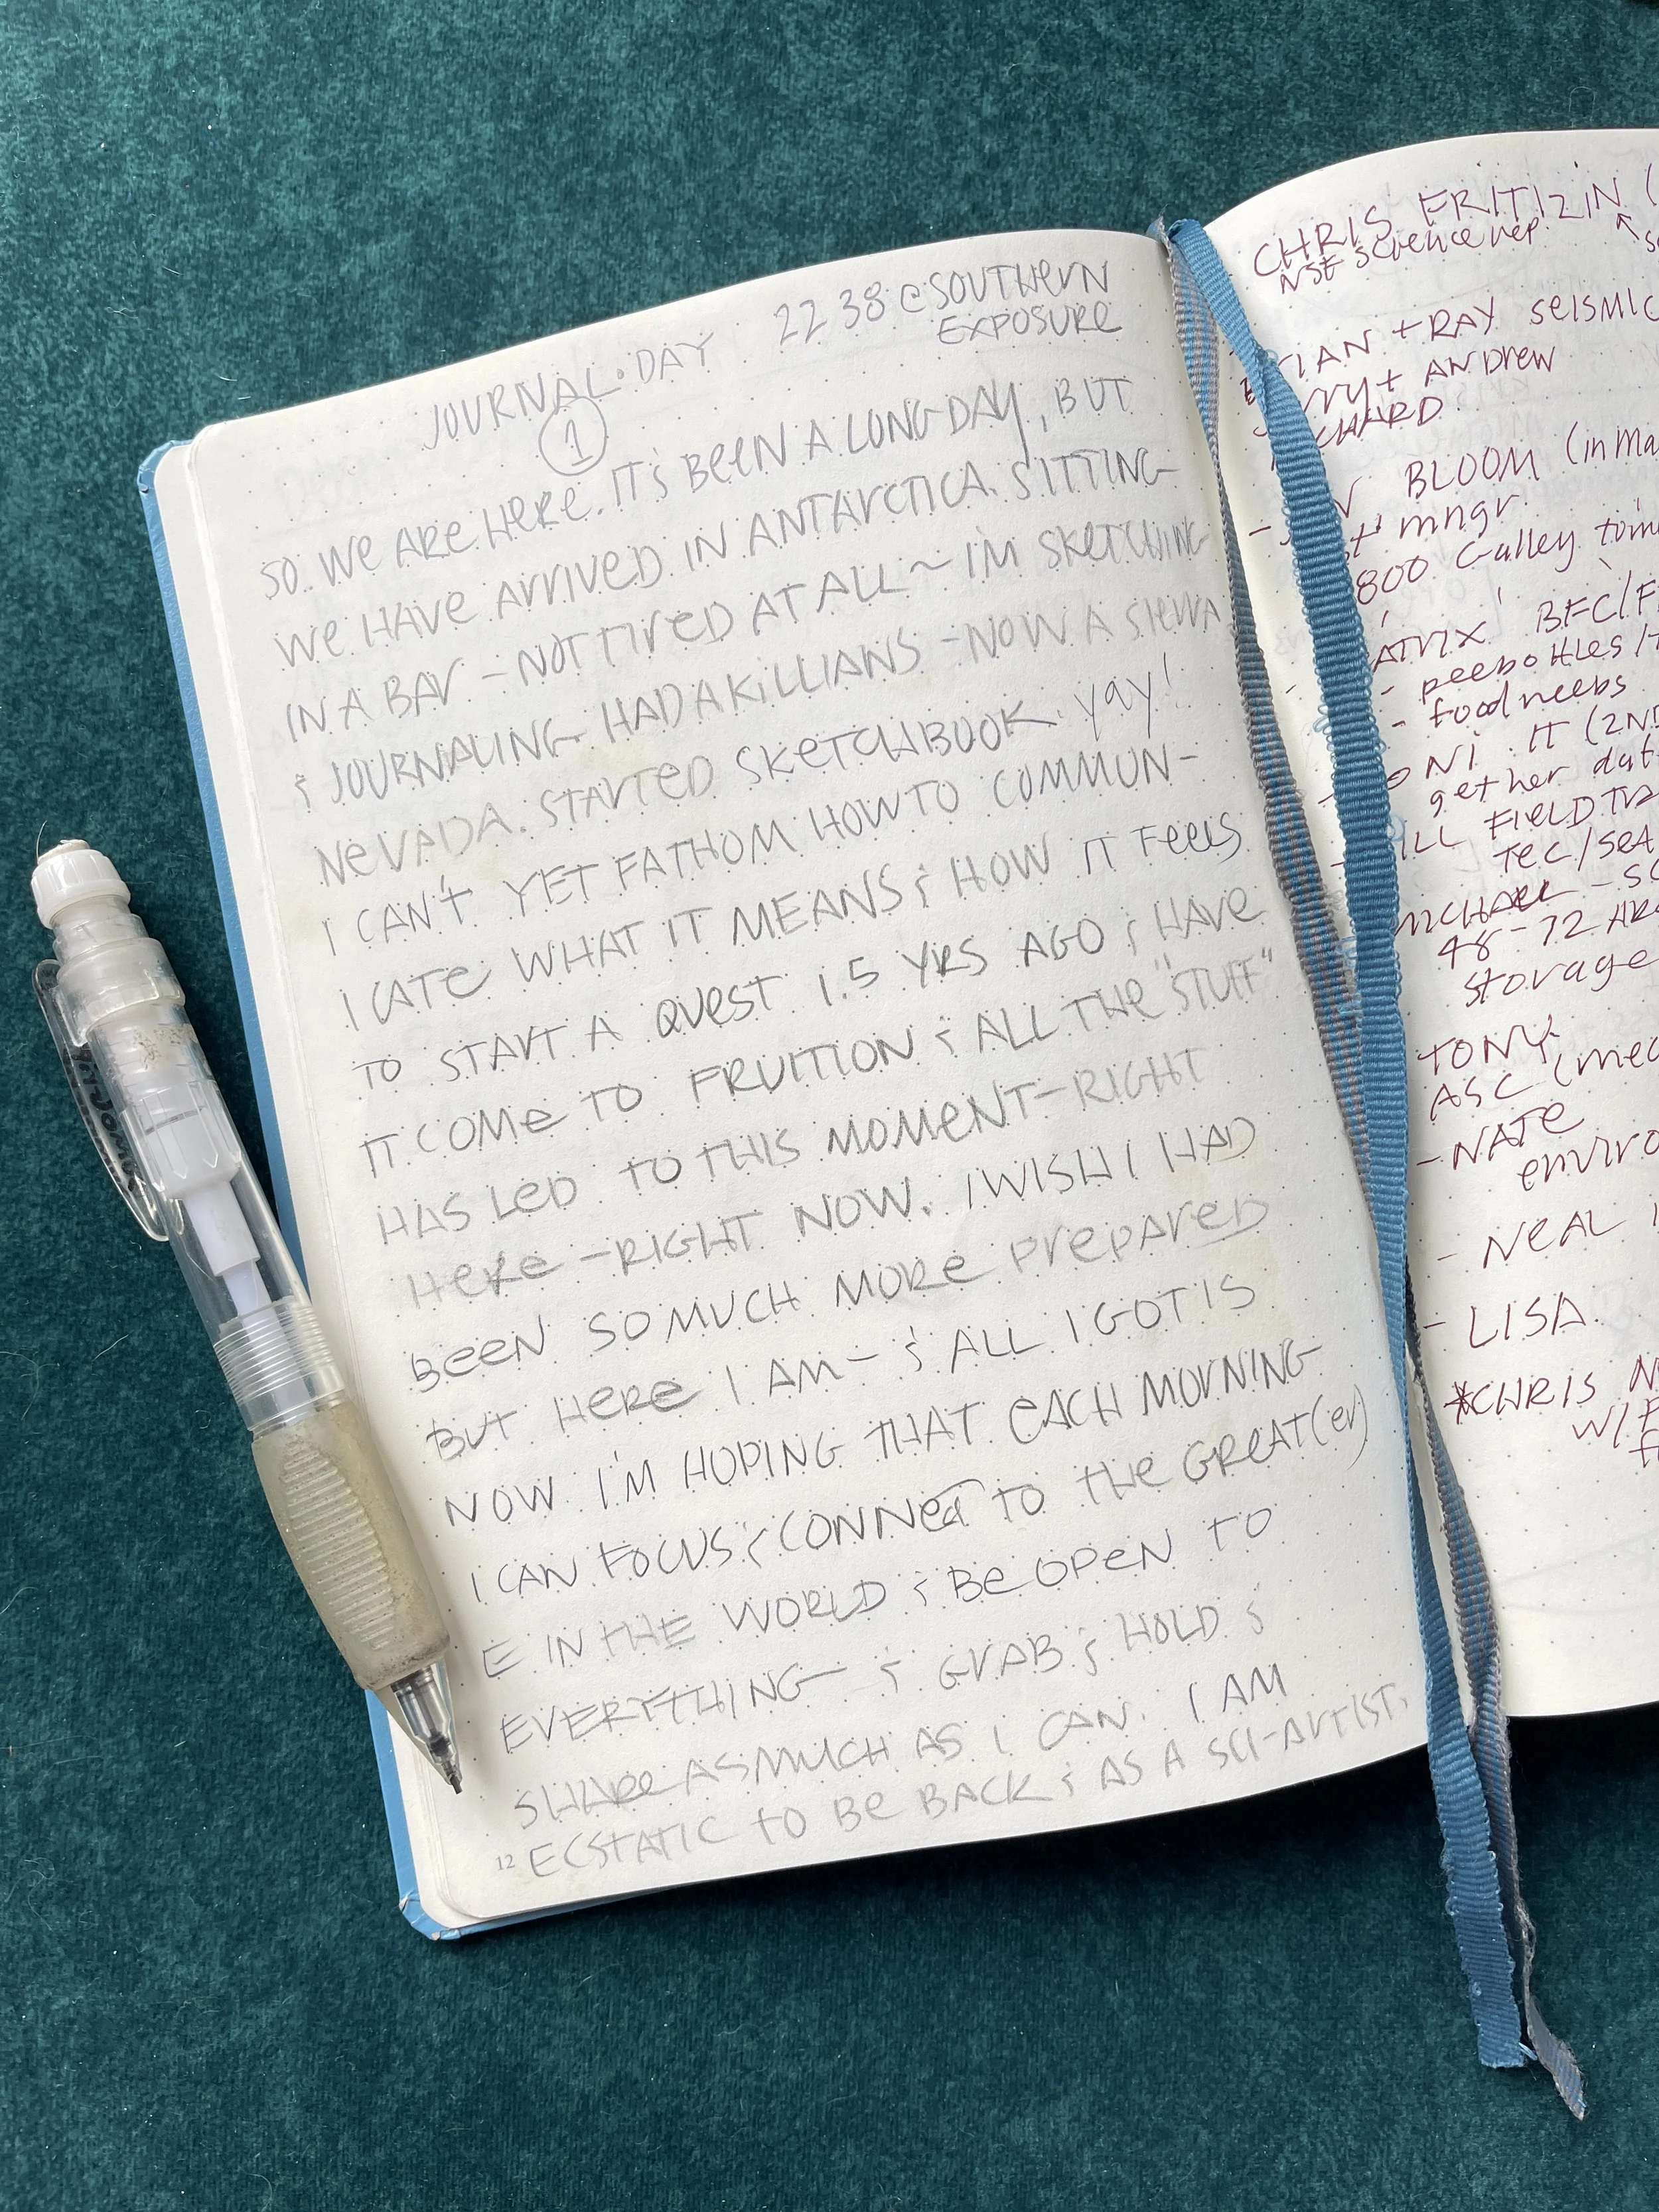 JOURNAL • DAY
1
22 38 @ SOUTHERN
EXPOSURE
SO. WE ARE HERE. IT'S BEEN A LONG DAY, BUT
WE HAVE ARRIVED IN ANTARCTICA. SITTING
IN A BAR - NOT TIRED AT ALL ~ I'M SKETCHING
& JOURNALING. HAD A KILLIANS - NOW A SIERRA
NEVADA. STARTED SKETCHBOOK. yay!
I CAN'T YET FATHOM HOW TO COMMUN-
ICATE WHAT IT MEANS & HOW IT FEELS
TO START A QUEST 1.5 YRS AGO & HAVE
IT COME TO FRUITION & ALL THE "STUFF"
HAS LED TO THIS MOMENT - RIGHT
HERE - RIGHT NOW. I WISH I HAD
BEEN SO MUCH MORE PREPARED
BUT HERE I AM - & ALL I GOT IS
NOW. I'M HOPING THAT EACH MORNING
I CAN FOCUS & CONNECT TO THE GREAT(er)
E IN THE WORLD & BE OPEN TO
EVERYTHING - & GRAB & HOLD &
SHARE AS MUCH AS I CAN. I AM
ECSTATIC TO BE BACK & AS A SCI-ARTIST.
12
CHRIS FRITIZIN (
NSF science rep.
+ RAY SEISMIC
+ ANDREW
BLOOM (in Ma
mngr.
800 Galley
BFC/F
- peebottles/
- food needs
IT (2ND
gether dat
FIELD TRA
TEC/SEA
MICHAEL - SC
48-72 HRS
storage
TONY
ASC (mec
- NATE
enviro
- NEAL
- LISA.
*CHRIS N
W/